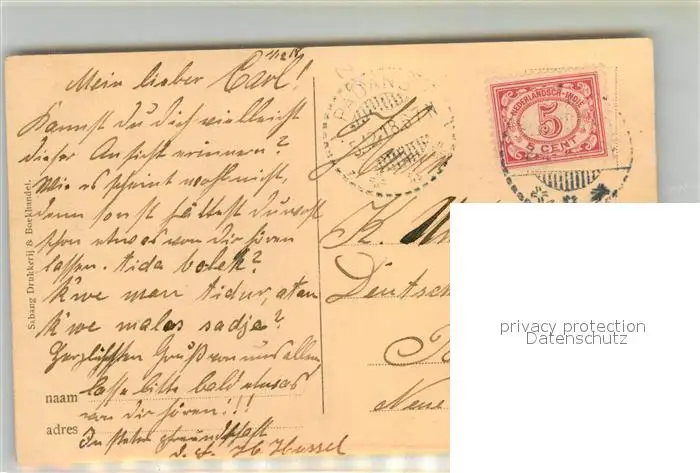 11.2.18
Mein lieber Carl!
Kannst du dich vielleicht
dieser Ansicht erinnern?
Wie es scheint wohl nicht,
denn sonst hättest du wohl
schon etwas von dir hören
lassen. tida boleh?
k'we man tidur, atau
k'we malas sadja?
Herzlichsten Gruß von uns allen
lasse bitte bald etwas
von dir hören!!!
In steter Freundschaft
naam
adres
Sabang Drukkerij & Boekhandel.
PADAN
NEDERLANDSCH-INDIË
5
5 CENT
K.
Deutsch
Neue
privacy protection
Datenschutz